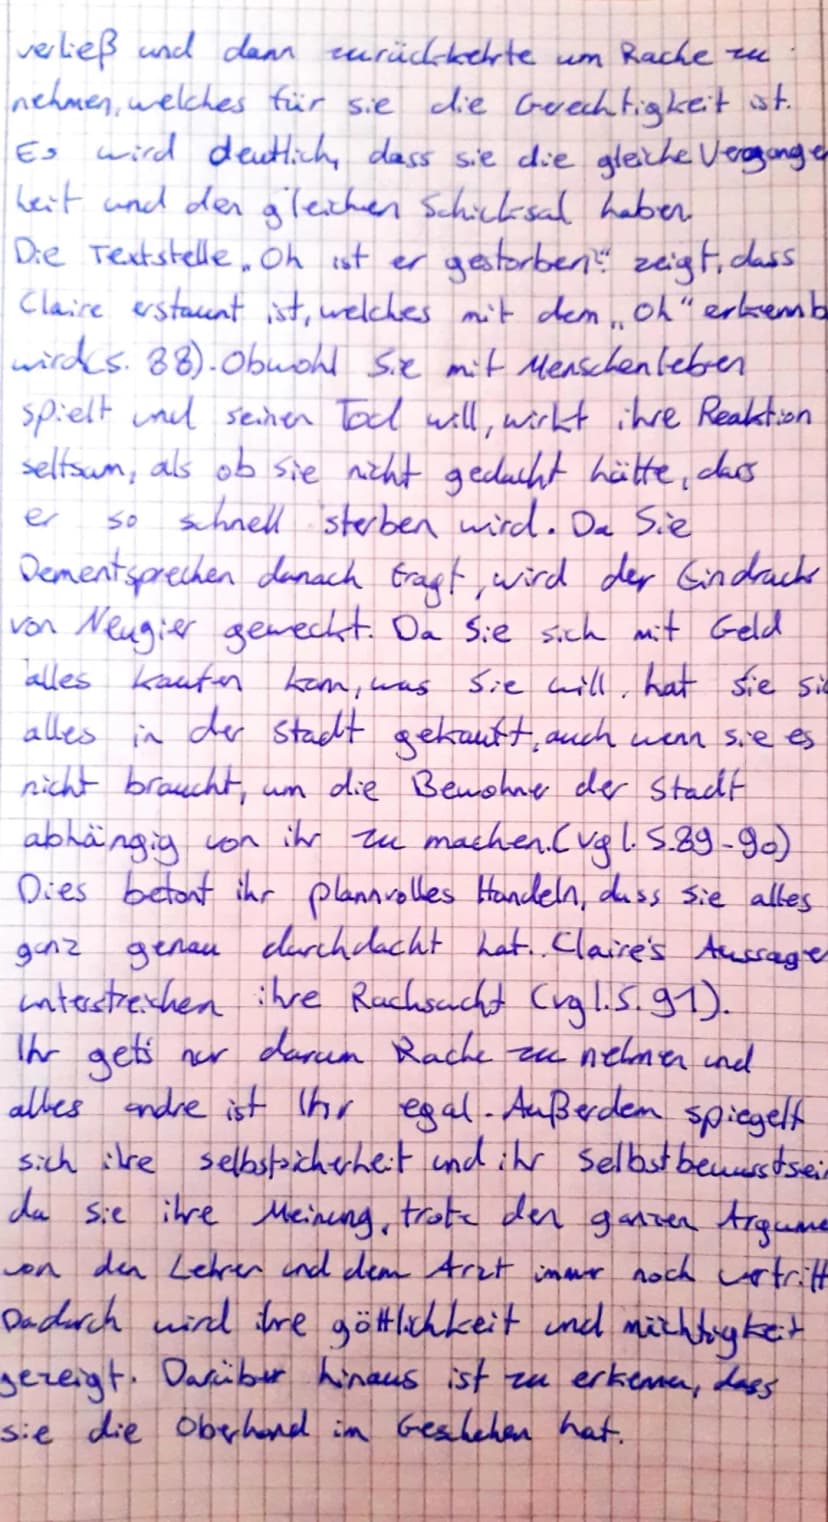 verließ und dann zurückkehrte um Rache zu
nehmen, welches für sie die Gerechtigkeit ist.
Es wird deutlich, dass sie die gleiche Vergangen
heit und den gleichen Schicksal haben.
Die Textstelle „Oh ist er gestorben?“ zeigt, dass
Claire erstaunt ist, welches mit dem „Oh“ erkennb
wird (S. 88). Obwohl Sie mit Menschenleben
spielt und seinen Tod will, wirkt ihre Reaktion
seltsam, als ob sie nicht gedacht hätte, dass
er so schnell sterben wird. Da Sie
Dementsprechen danach fragt, wird der Eindruck
von Neugier geweckt. Da Sie sich mit Geld
alles kaufen kann, was Sie will, hat sie si
alles in der Stadt gekauft, auch wenn sie es
nicht braucht, um die Bewohner der Stadt
abhängig von ihr zu machen. (vgl. S.89-90)
Dies betont ihr plannvolles Handeln, dass sie alles
ganz genau durchdacht hat. Claire's Aussage
unterstreichen ihre Rachsucht (vgl. S. 91).
Ihr gets nur darum Rache zu nehmen und
alles andre ist Ihr egal. Außerdem spiegelt
sich ihre selbstsicherheit und ihr Selbstbewusstsein
da sie ihre Meinung, trotz den ganzen Argume
von den Lehrer und dem Arzt immer noch vertritt
Dadurch wird ihre göttlichkeit und mächtigkeit
gezeigt. Darüber hinaus ist zu erkennen, dass
sie die Oberhand im Geschehen hat.